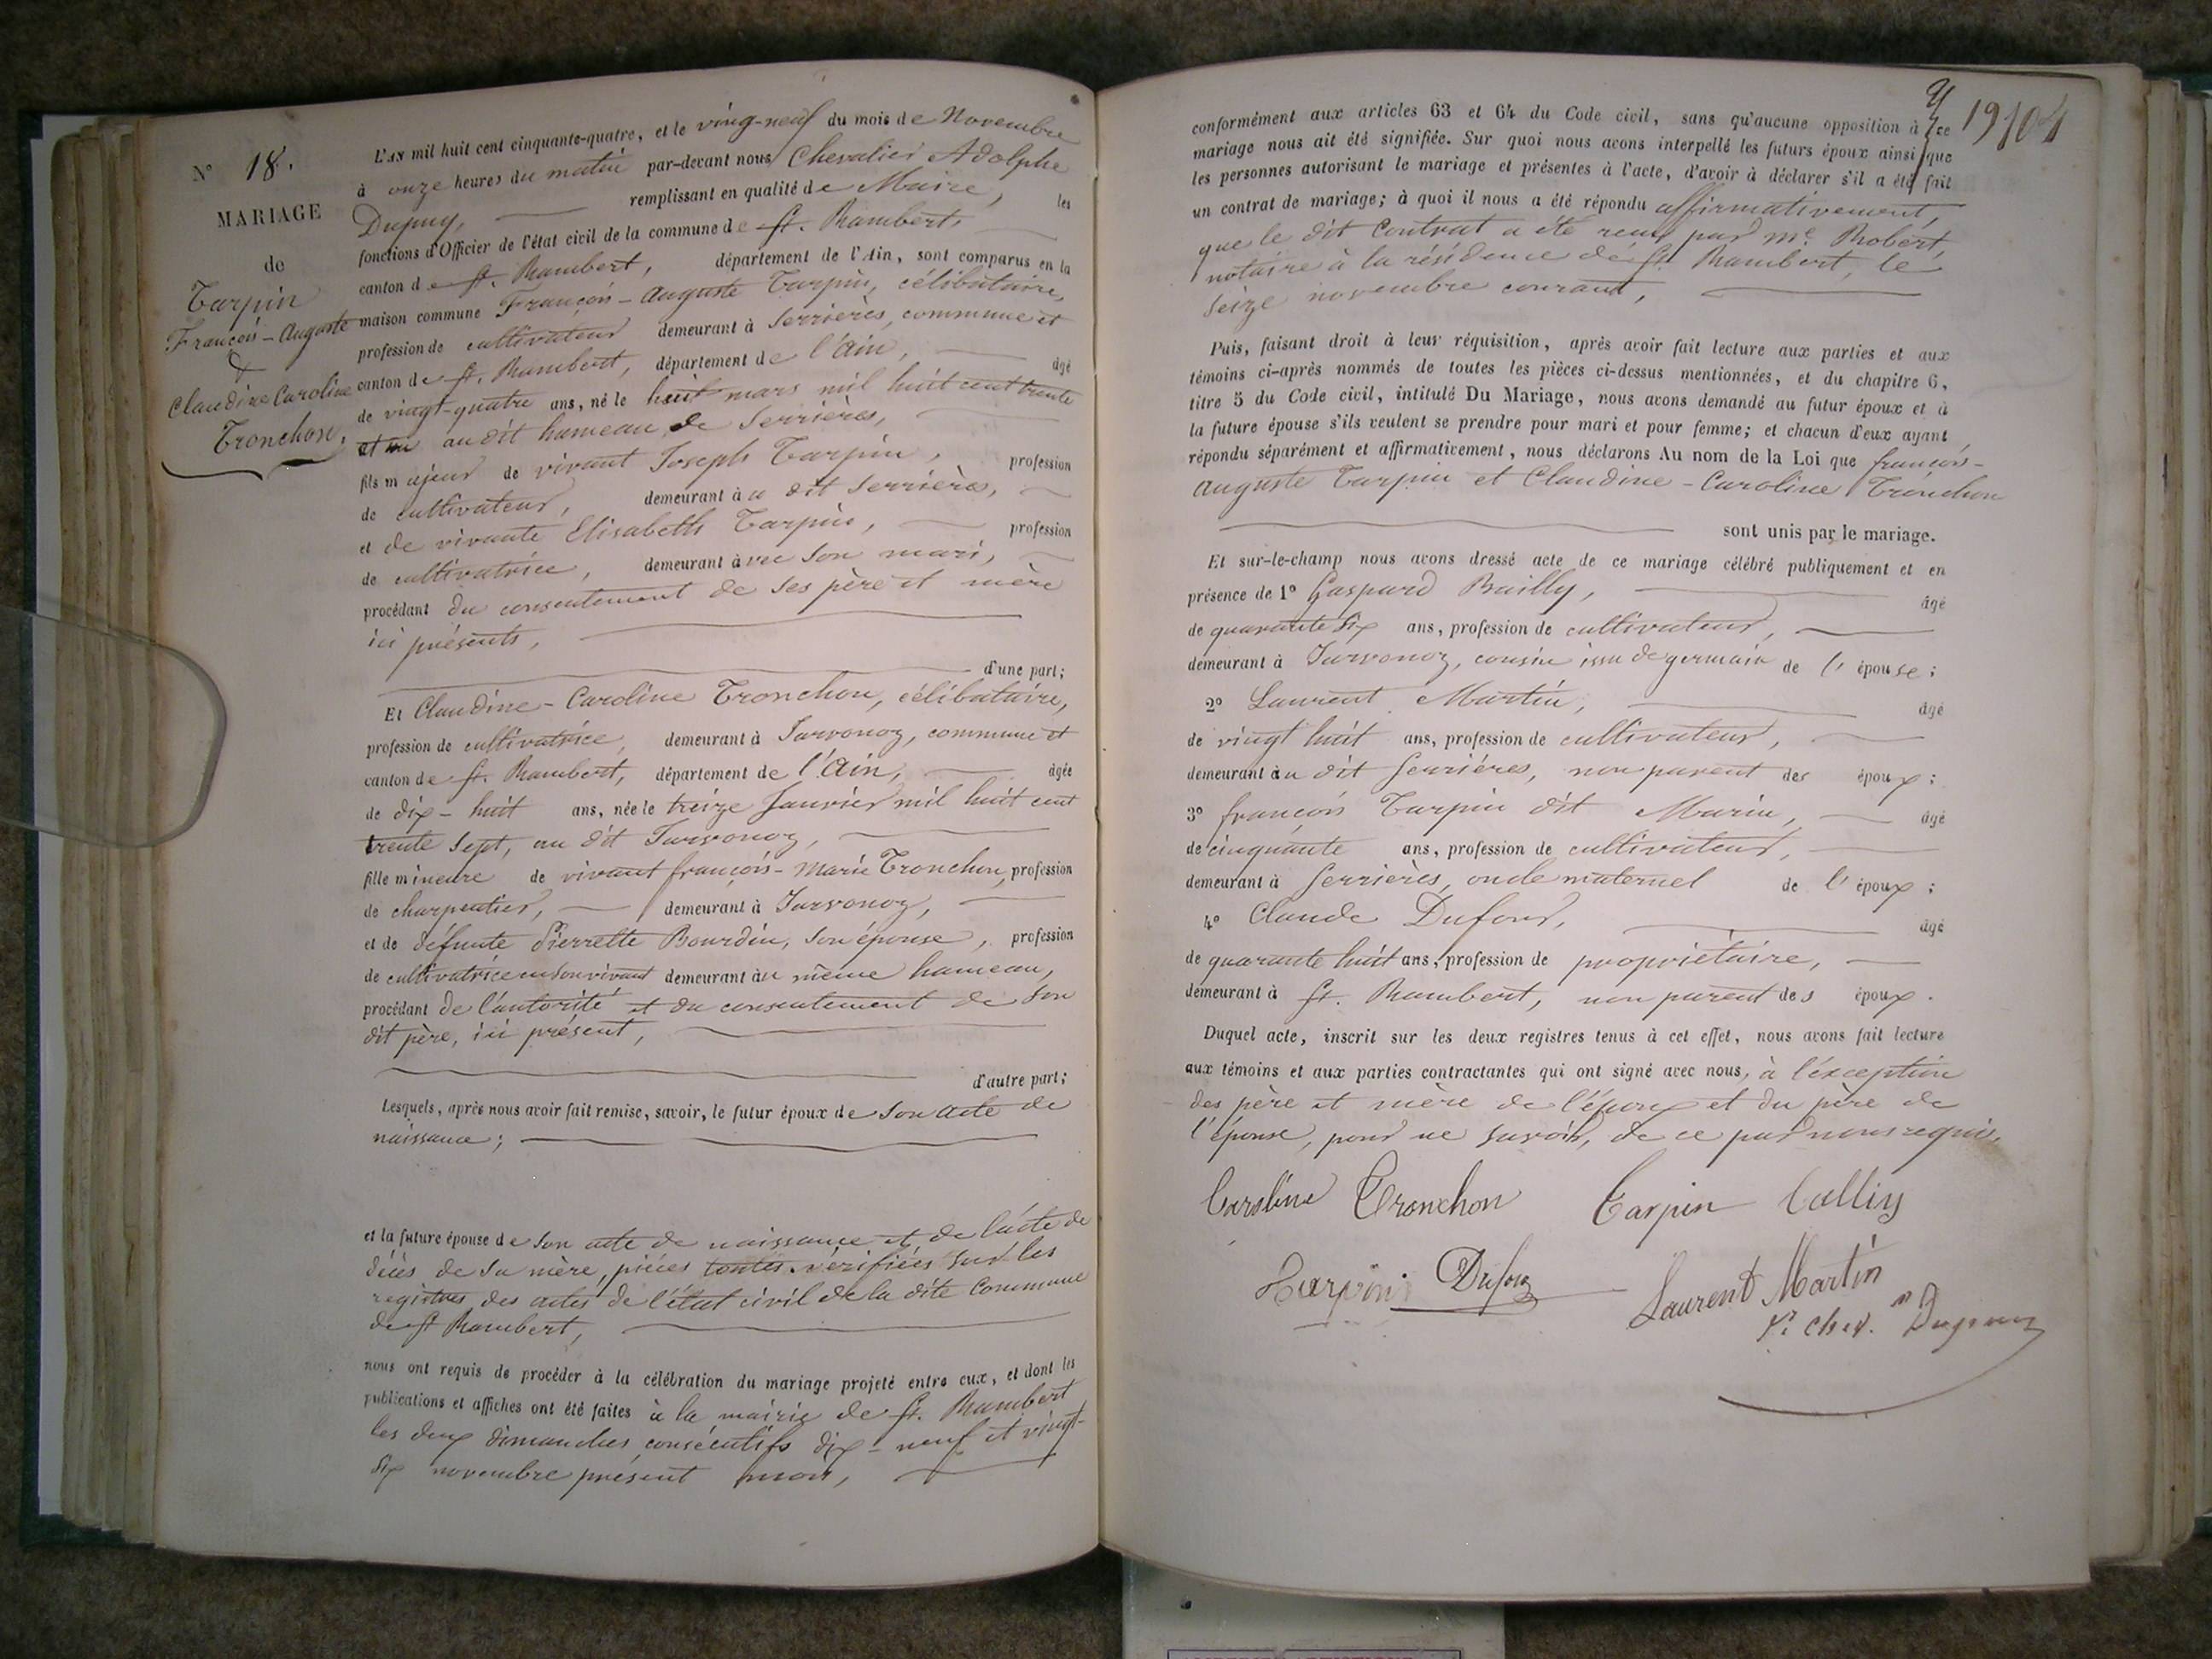 N° 18.
MARIAGE
de
Tarpin
François-Auguste
&
Claudine Caroline
Tronchon.
L'AN mil huit cent cinquante-quatre, et le ving-neuf du mois de Novembre
à onze heures du matin par-devant nous Chevalier Adolphe
Dupuy, remplissant en qualité de Maire, les
fonctions d'Officier de l'état civil de la commune de St. Rambert,
canton de St. Rambert, département de l'Ain, sont comparus en la
maison commune François-Auguste Tarpin, célibataire,
profession de cultivateur demeurant à Serrières, commune et
canton de St. Rambert, département de l'Ain, âgé
de vingt-quatre ans, né le huit mars mil huit cent trente
et un au dit hameau de Serrières,
fils majeur de vivant Joseph Tarpin, profession
de cultivateur, demeurant au dit Serrières,
et de vivante Elisabeth Tarpin, profession
de cultivatrice, demeurant avec son mari,
procédant du consentement de ses père et mère
ici présents,
d'une part;
Et Claudine-Caroline Tronchon, célibataire,
profession de cultivatrice, demeurant à Javornoz, commune et
canton de St. Rambert, département de l'Ain, âgée
de dix-huit ans, née le treize Janvier mil huit cent
trente sept, au dit Javornoz,
fille mineure de vivant françois-Marie Tronchon, profession
de charpentier, demeurant à Javornoz,
et de défunte Pierrette Bourdin, son épouse, profession
de cultivatrice en son vivant demeurant au même hameau,
procédant de l'autorité et du consentement de son
dit père, ici présent,
d'autre part;
Lesquels, après nous avoir fait remise, savoir, le futur époux de son acte de
naissance;
et la future épouse de son acte de naissance et de l'acte de
décès de sa mère, pièces toutes vérifiées sur les
registres des actes de l'état civil de la dite Commune
de St Rambert,
nous ont requis de procéder à la célébration du mariage projeté entre eux, et dont les
publications et affiches ont été faites à la mairie de St. Rambert
les deux dimanches consécutifs dix-neuf et vingt-
six novembre présent mois,
19104
conformément aux articles 63 et 64 du Code civil, sans qu'aucune opposition à ce
mariage nous ait été signifiée. Sur quoi nous avons interpellé les futurs époux ainsi que
les personnes autorisant le mariage et présentes à l'acte, d'avoir à déclarer s'il a été fait
un contrat de mariage; à quoi il nous a été répondu affirmativement,
que le dit Contrat a été reçu par Me. Robert,
notaire à la résidence de St. Rambert, le
seize novembre courant,
Puis, faisant droit à leur réquisition, après avoir fait lecture aux parties et aux
témoins ci-après nommés de toutes les pièces ci-dessus mentionnées, et du chapitre 6,
titre 5 du Code civil, intitulé Du Mariage, nous avons demandé au futur époux et à
la future épouse s'ils veulent se prendre pour mari et pour femme; et chacun d'eux ayant
répondu séparément et affirmativement, nous déclarons Au nom de la Loi que françois-
Auguste Tarpin et Claudine-Caroline Tronchon
sont unis par le mariage.
Et sur-le-champ nous avons dressé acte de ce mariage célébré publiquement et en
présence de 1° Gaspard Bailly, âgé
de quarante six ans, profession de cultivateur,
demeurant à Javornoz, cousin issu de germain de l'épouse;
2° Laurent Martin, âgé
de vingt huit ans, profession de cultivateur,
demeurant au dit Serrières, non parent des époux;
3° françois Tarpin dit Marin, âgé
de cinquante ans, profession de cultivateur,
demeurant à Serrières, oncle maternel de l'époux;
4° Claude Dufour, âgé
de quarante huit ans, profession de propriétaire,
demeurant à St. Rambert, non parent des époux.
Duquel acte, inscrit sur les deux registres tenus à cet effet, nous avons fait lecture
aux témoins et aux parties contractantes qui ont signé avec nous, à l'exception
des père et mère de l'époux et du père de
l'épouse, pour ne savoir, de ce par nous requis.
Caroline Tronchon Tarpin
Tarpin Dufour Laurent Martin
Dupuy